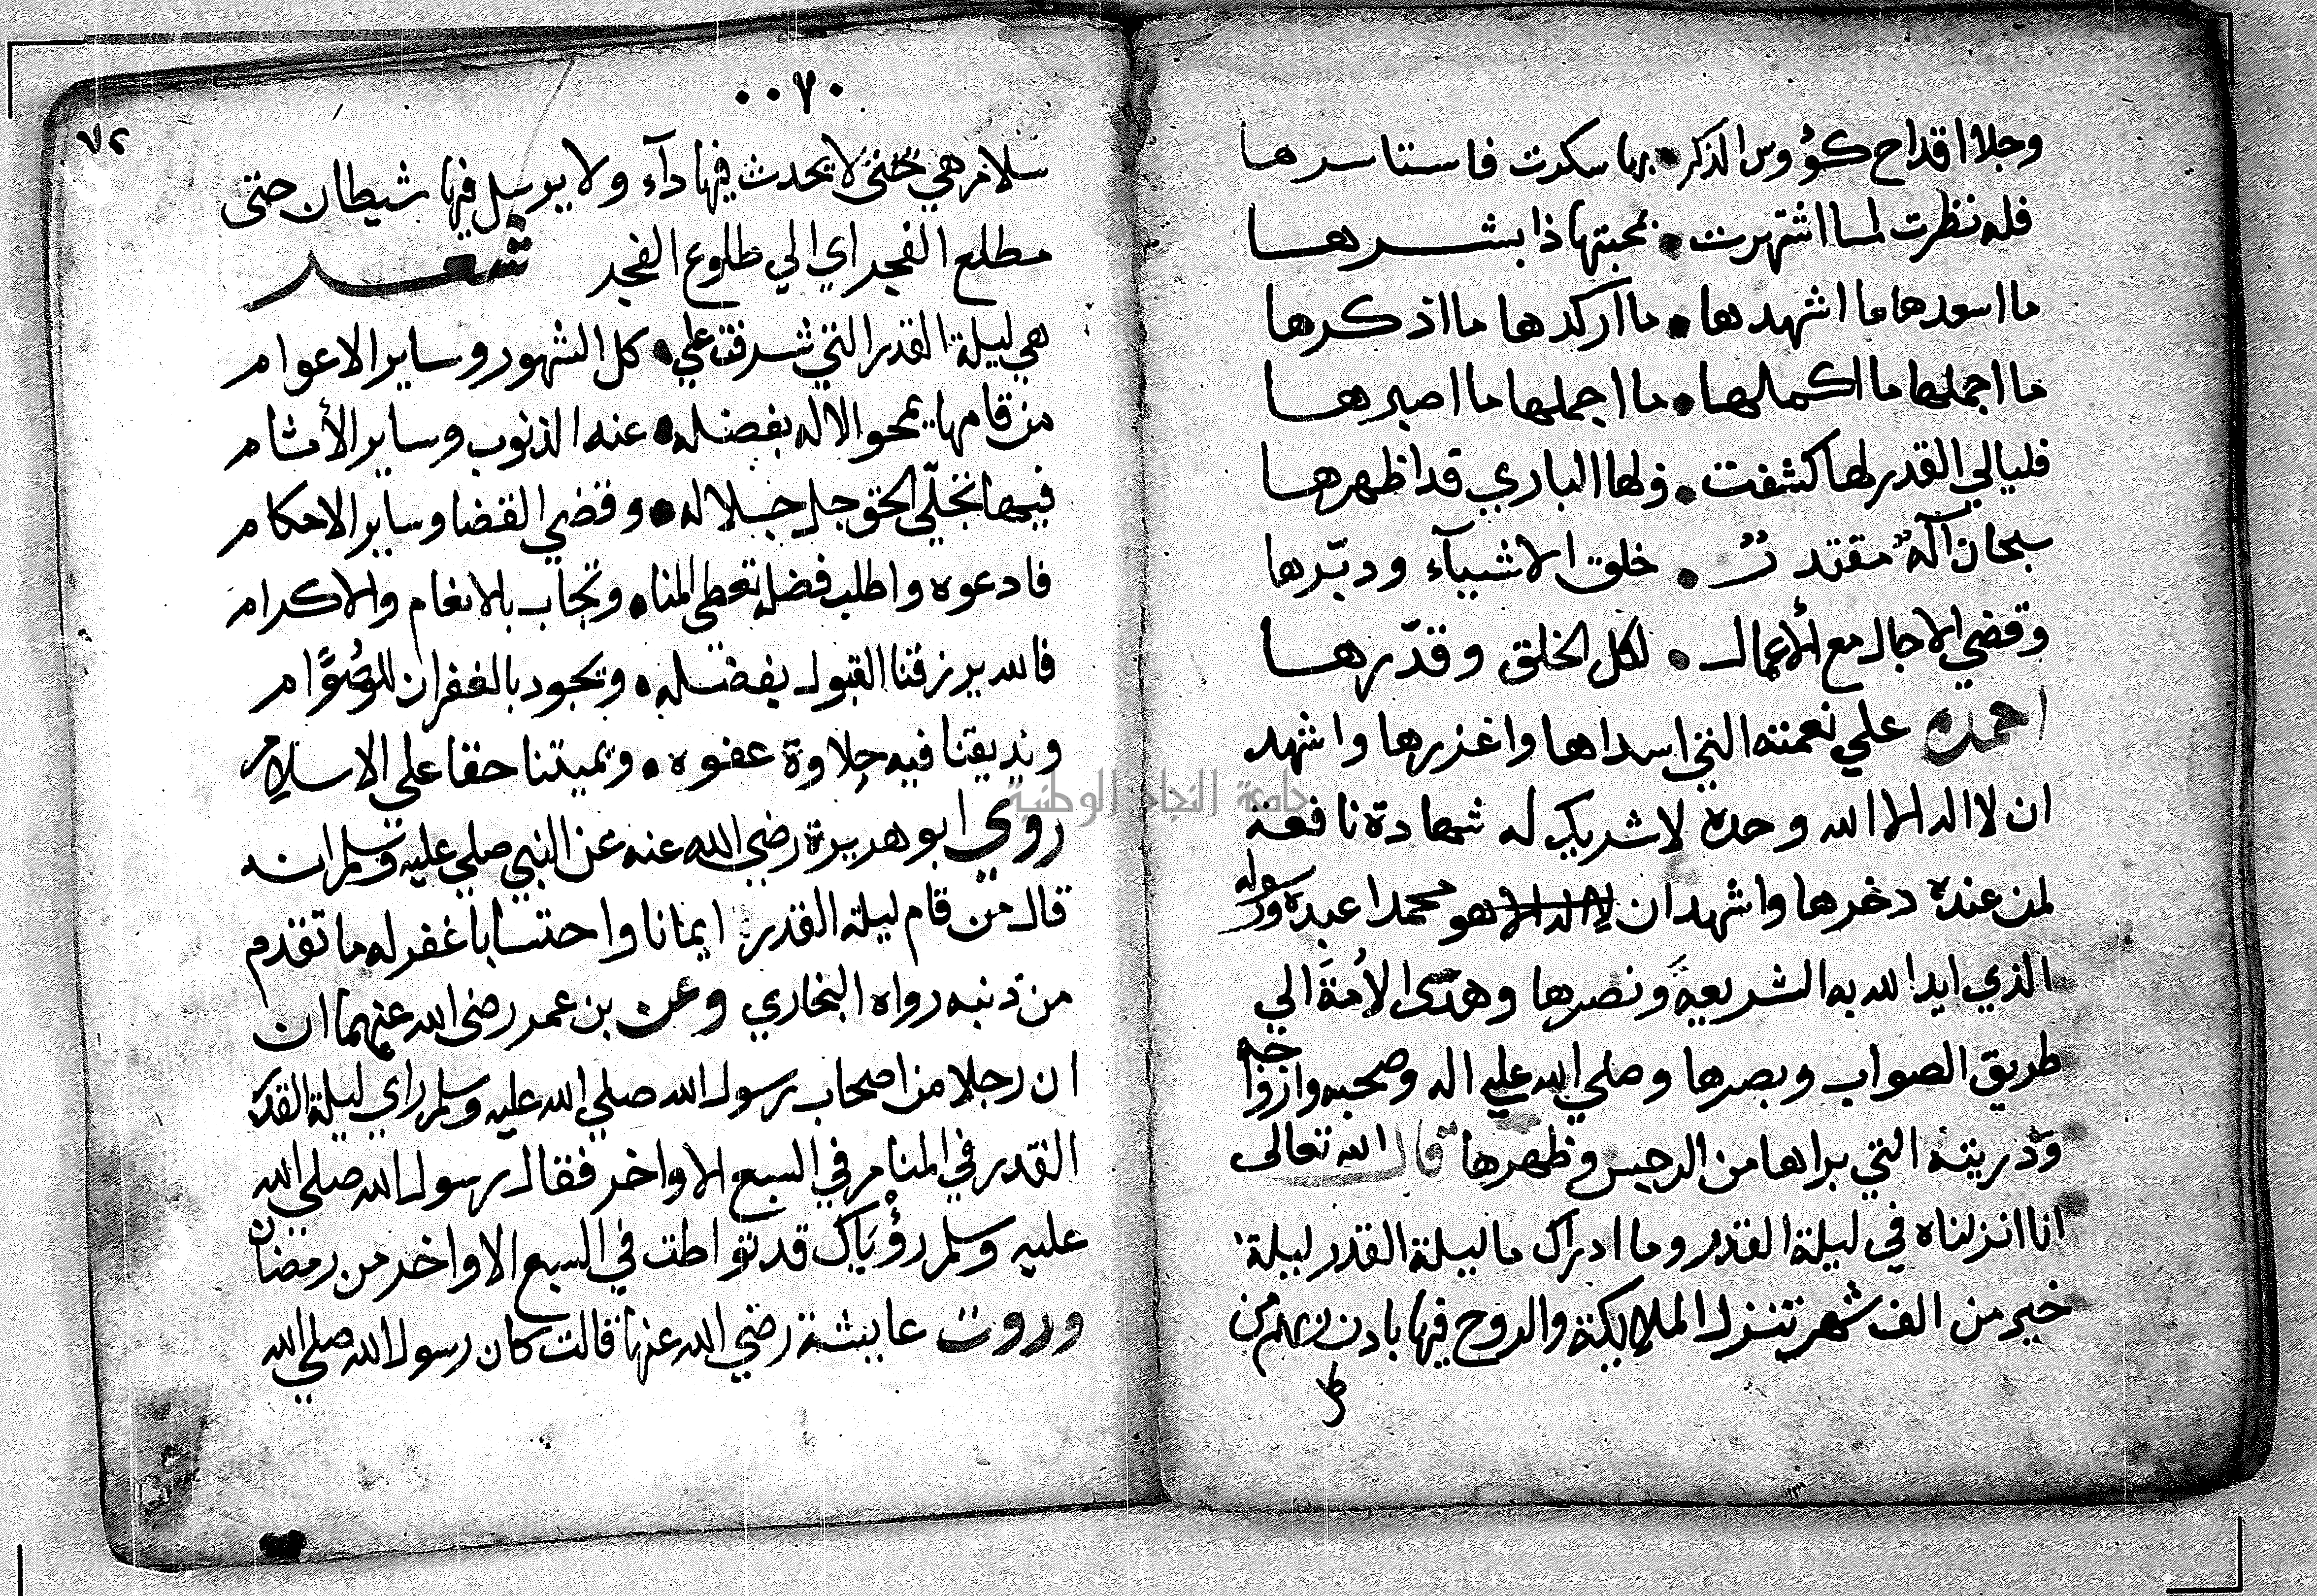 وجلا اقداح كؤوس الذكر • بها سكرت فاستاسرها
فله نظرت لما اشتهرت • بمحبتها ذا بشرها
ما اسعدها ما اشهدها • ما اركدها ما اذكرها
ما اجملها ما اكملها • ما اجملها ما اصبرها
فليالي القدر لها كشفت • ولها الباري قد اظهرها
سبحان اله مقتدر • خلق الاشيآء ودبّرها
وقضي الاجال مع الأعمال • لكل الخلق وقدّرها
احمده علي نعمته التي اسداها واغزرها واشهد
ان لا اله الا الله وحده لا شريك له شهادة نافعة
لمن عنده دخرها واشهد ان لا اله الا هو محمدا عبده ورسوله
الذي ايد الله به الشريعة ونصرها وهدى الأمة الي
طريق الصواب وبصرها وصلي الله علي اله وصحبه وازواجه
وذريته التي براها من الرجس وطهرها قال الله تعالى
انا انزلناه في ليلة القدر وما ادراك ما ليلة القدر ليلة
خير من الف شهر تنزل الملايكة والروح فيها بادن ربهم من
كل
٠٠٧٠
٧٢
سلام هي حتى لا يحدث فيها دآء ولا يرسل فيها شيطان حتى
مطلع الفجر اي الي طلوع الفجر شعر
هي ليلة القدر التي شرفت علي • كل الشهور وساير الاعوام
من قامها يمحو الاله بفضله • عنه الذنوب وساير الأثام
فيها تجلّي الحق جل جلاله • وقضي القضا وساير الاحكام
فادعوه واطلب فضله تعطي المنا • وتجاب بالانعام والاكرام
فالله يرزقنا القبول بفضله • ويجود بالغفران للصُوَّام
ونديقنا فيه حلاوة عفوه • ويميتنا حقا علي الاسلام
روي ابو هريرة رضي الله عنه عن النبي صلي عليه وسلم انه
قال من قام ليلة القدر ايمانا واحتسابا غفر له ما تقدم
من ذنبه رواه البخاري وعن بن عمر رضى الله عنهما ان
ان رجلا من اصحاب رسول الله صلي الله عليه وسلم راي ليلة القدر
القدر في المنام في السبع الاواخر فقال رسول الله صلي الله
عليه وسلم رؤياك قد تواطت في السبع الاواخر من رمضان
وروت عايشة رضي الله عنها قالت كان رسول الله صلي الله
جامعة النجاح الوطنية